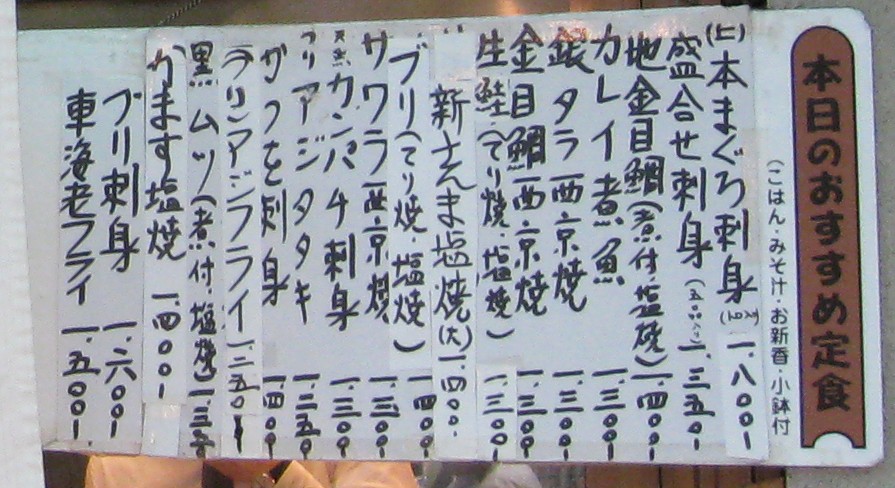 本日のおすすめ定食
(ごはん・みそ汁・お新香・小鉢付
(上)本まぐろ刺身 一、八〇〇一
盛合せ刺身 一、三五〇一
地金目鯛(煮付・塩焼) 一、四〇〇一
カレイ煮魚 一、三〇〇一
銀タラ西京焼 一、三〇〇一
金目鯛西京焼 一、三〇〇一
生鮭(てり焼・塩焼) 一、三〇〇一
新さんま塩焼(大) 一、四〇〇、
ブリ(てり焼・塩焼) 一、四〇〇一
サワラ西京焼 一、三〇〇一
カンパチ刺身 一、三〇〇一
アジタタキ 一、三五〇一
かつを刺身 一、四〇〇一
アジフライ 一、二五〇一
黒ムツ(煮付・塩焼)
かます塩焼 一、四〇〇一
ブリ刺身 一、六〇〇一
車海老フライ 一、五〇〇一